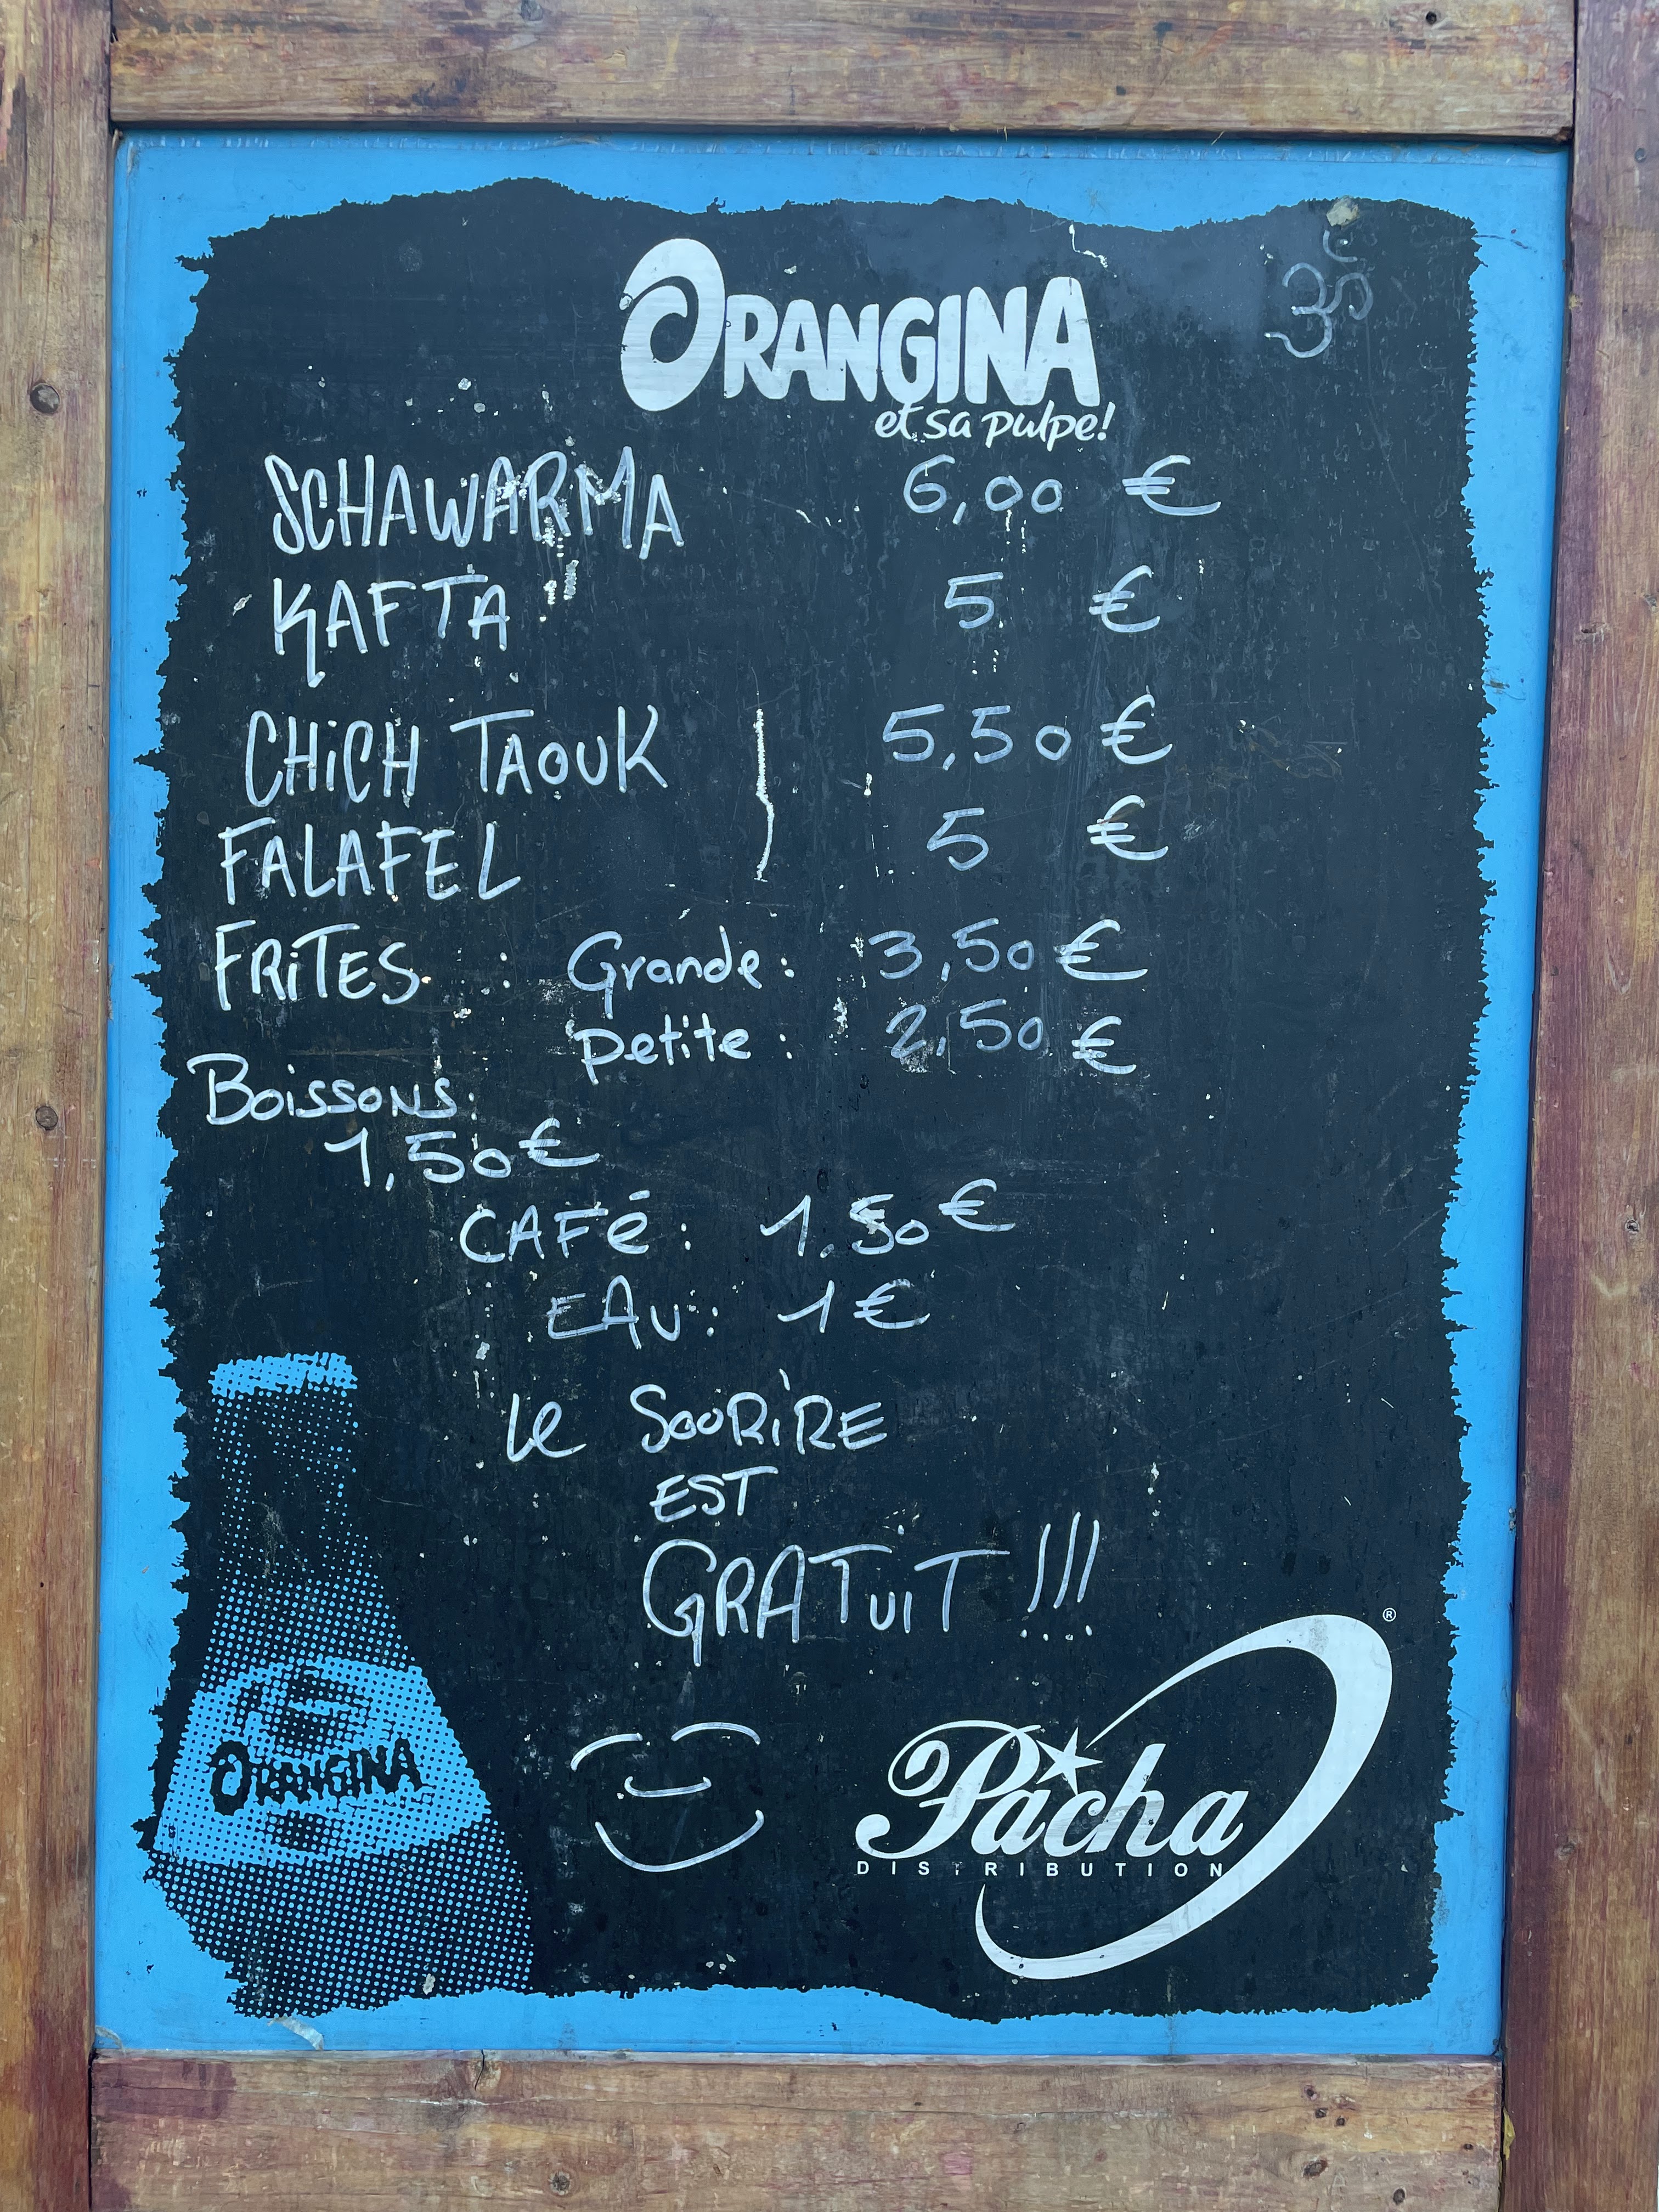 ORANGINA
et sa pulpe!
ॐ
SCHAWARMA 6,00 €
KAFTA 5 €
CHICH TAOUK 5,50 €
FALAFEL 5 €
FRITES : Grande : 3,50 €
petite : 2,50 €
Boissons :
1,50 €
CAFé : 1.50 €
EAU : 1 €
Le SOURIRE
EST
GRATUIT !!!
ORANGINA
Pacha ®
DISTRIBUTION